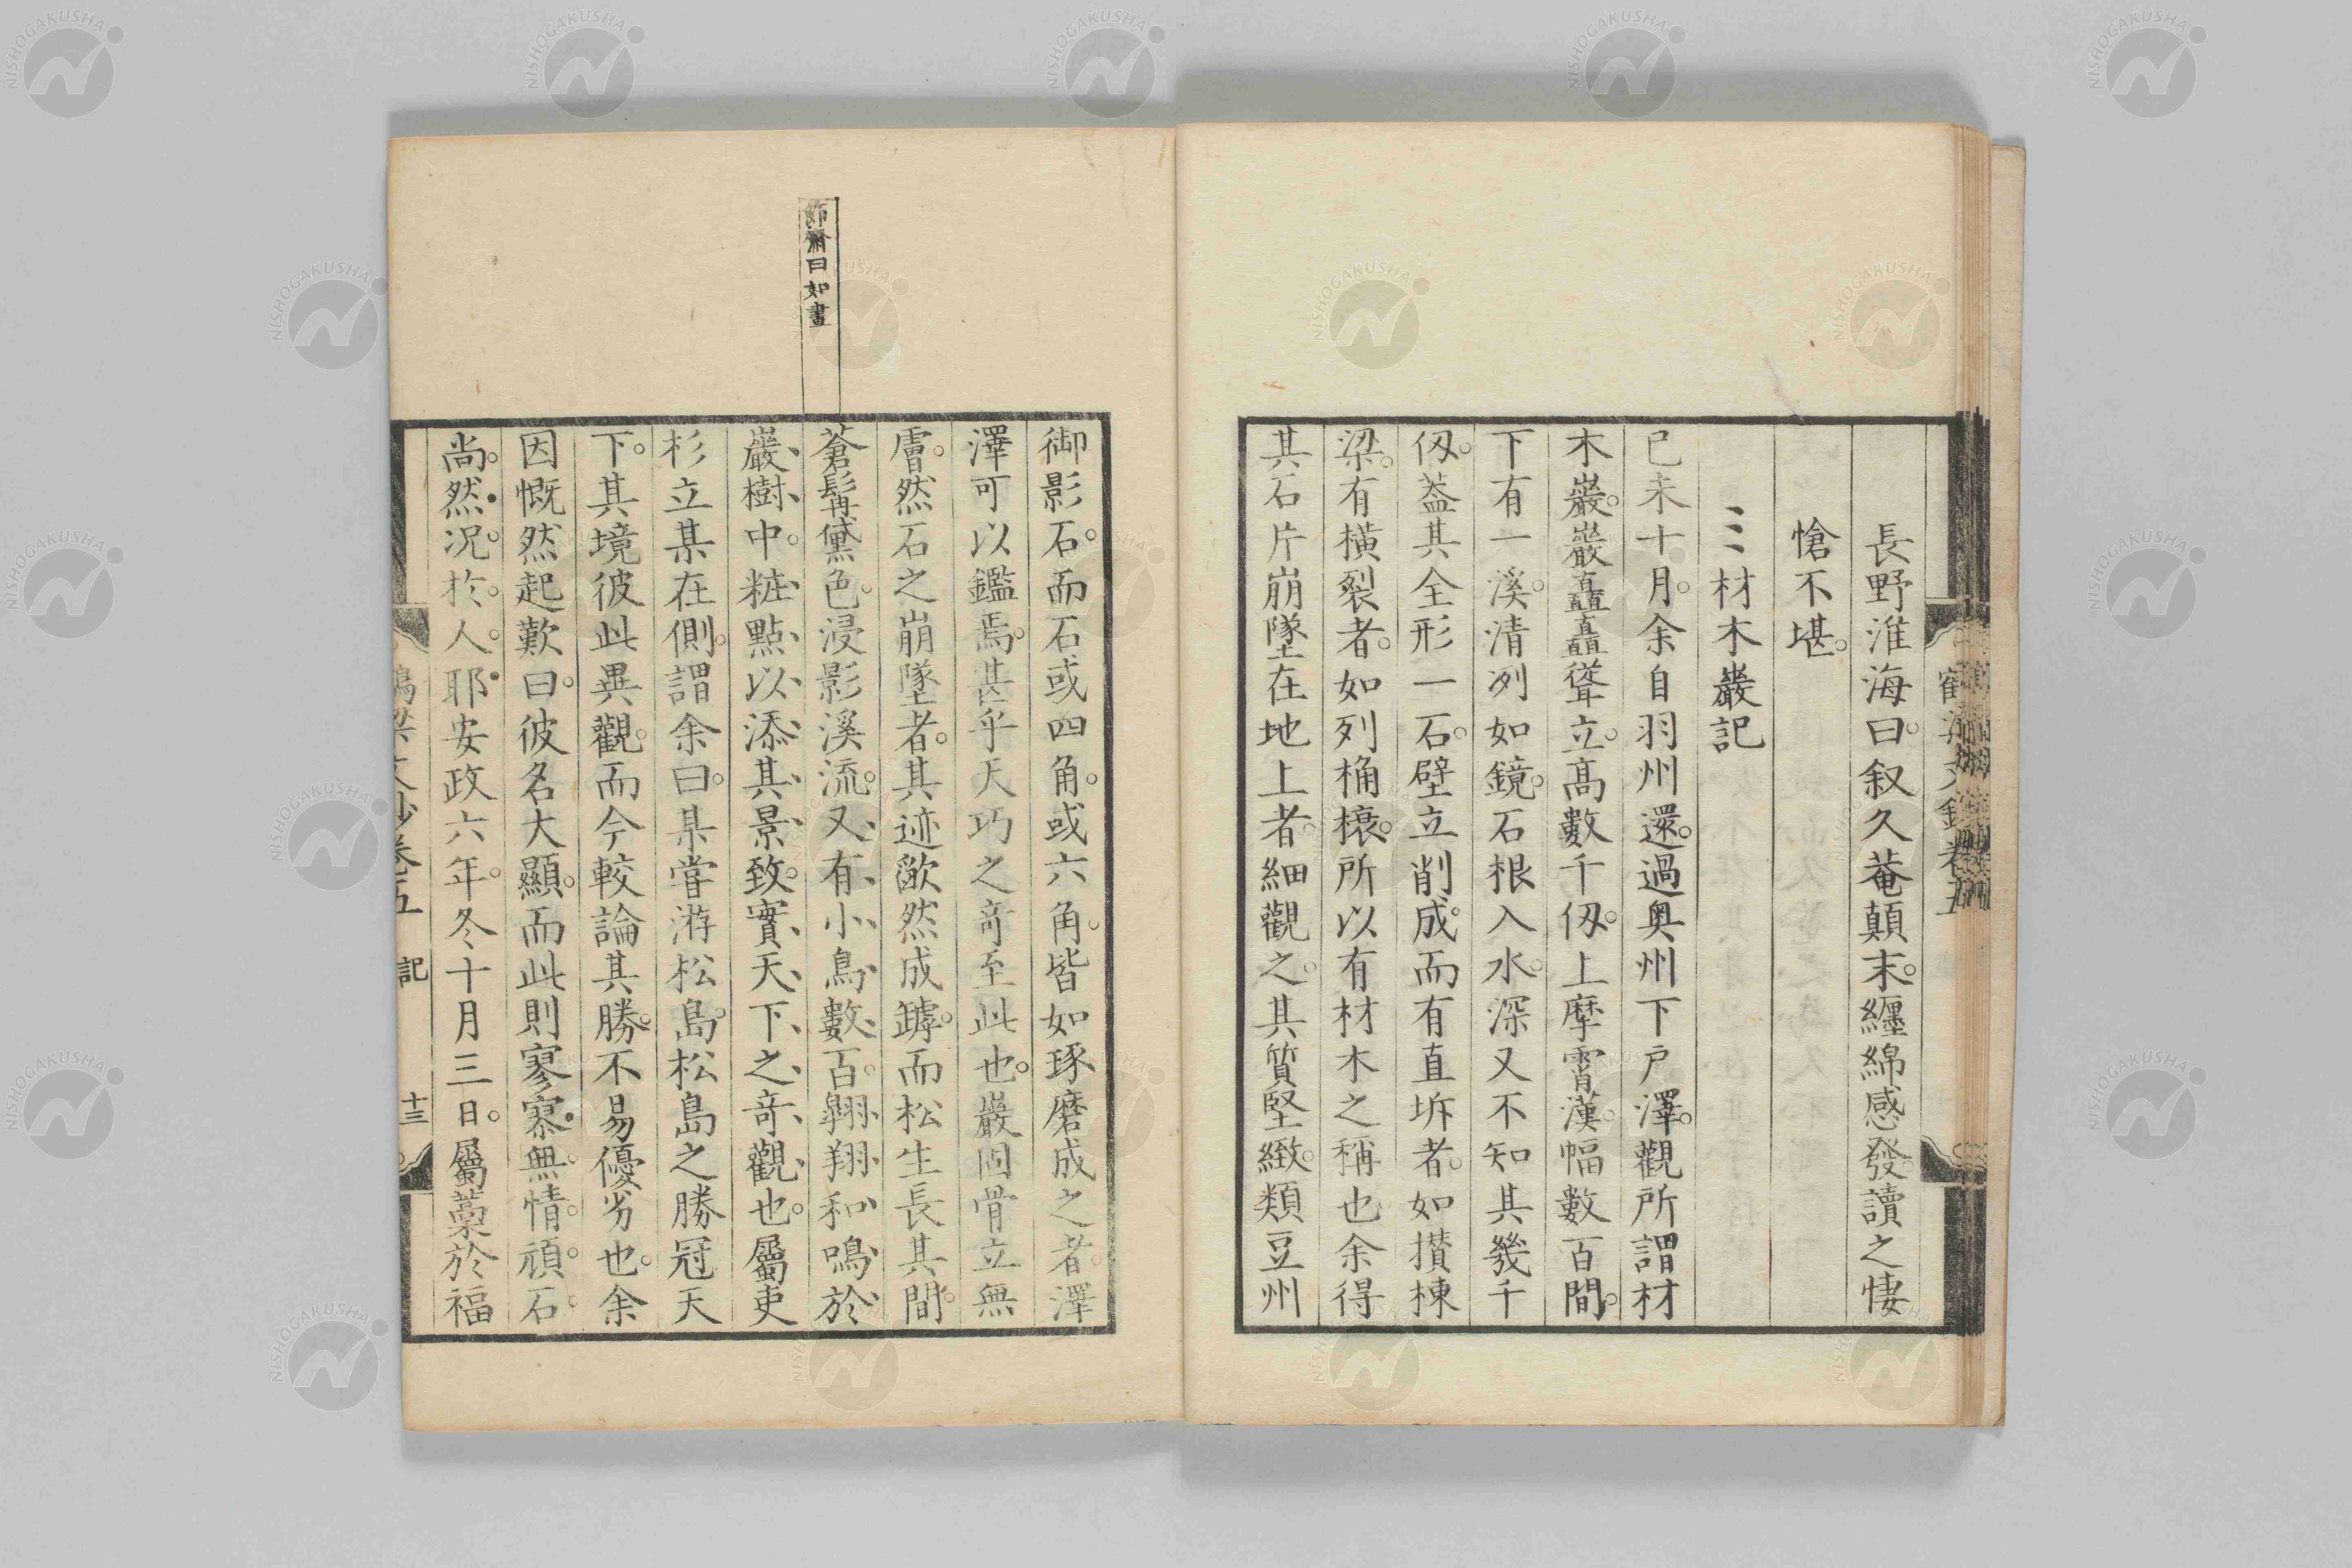 長野淮海曰。叙久菴顛末。纏綿感發。讀之悽
愴不堪。
材木巖記
己未十月。余自羽州還。過奥州下戸澤。觀所謂材
木巖。巖矗矗聳立。高數千仭。上摩霄漢。幅數百間。
下有一溪。清冽如鏡。石根入水。深又不知其幾千
仭。蓋其全形一石。壁立削成。而有直坼者。如攅棟
梁。有橫裂者。如列桷榱。所以有材木之稱也。余得
其石片崩墜在地上者。細觀之。其質堅緻。類豆州
御影石。而石或四角。或六角。皆如琢磨成之者。澤
澤可以鑑焉。甚乎天巧之竒至此也。巖固骨立無
膚。然石之崩墜者。其迹歘然成罅。而松生長其間。
蒼髯黛色。浸影溪流。又有小鳥數百。翺翔和鳴於
巖樹中。粧點以添其景致。實天下之竒觀也。屬吏
杉立某在側。謂余曰。某嘗游松島。松島之勝冠天
下。其境彼此異觀。而今較論其勝。不易優劣也。余
因慨然起歎曰。彼名大顯。而此則寥寥。無情。頑石。
尚然。况於人耶。安政六年。冬十月三日。屬藁於福
節齋曰如畫
鶴梁文鈔卷五 記 十三
NISHOGAKUSHA